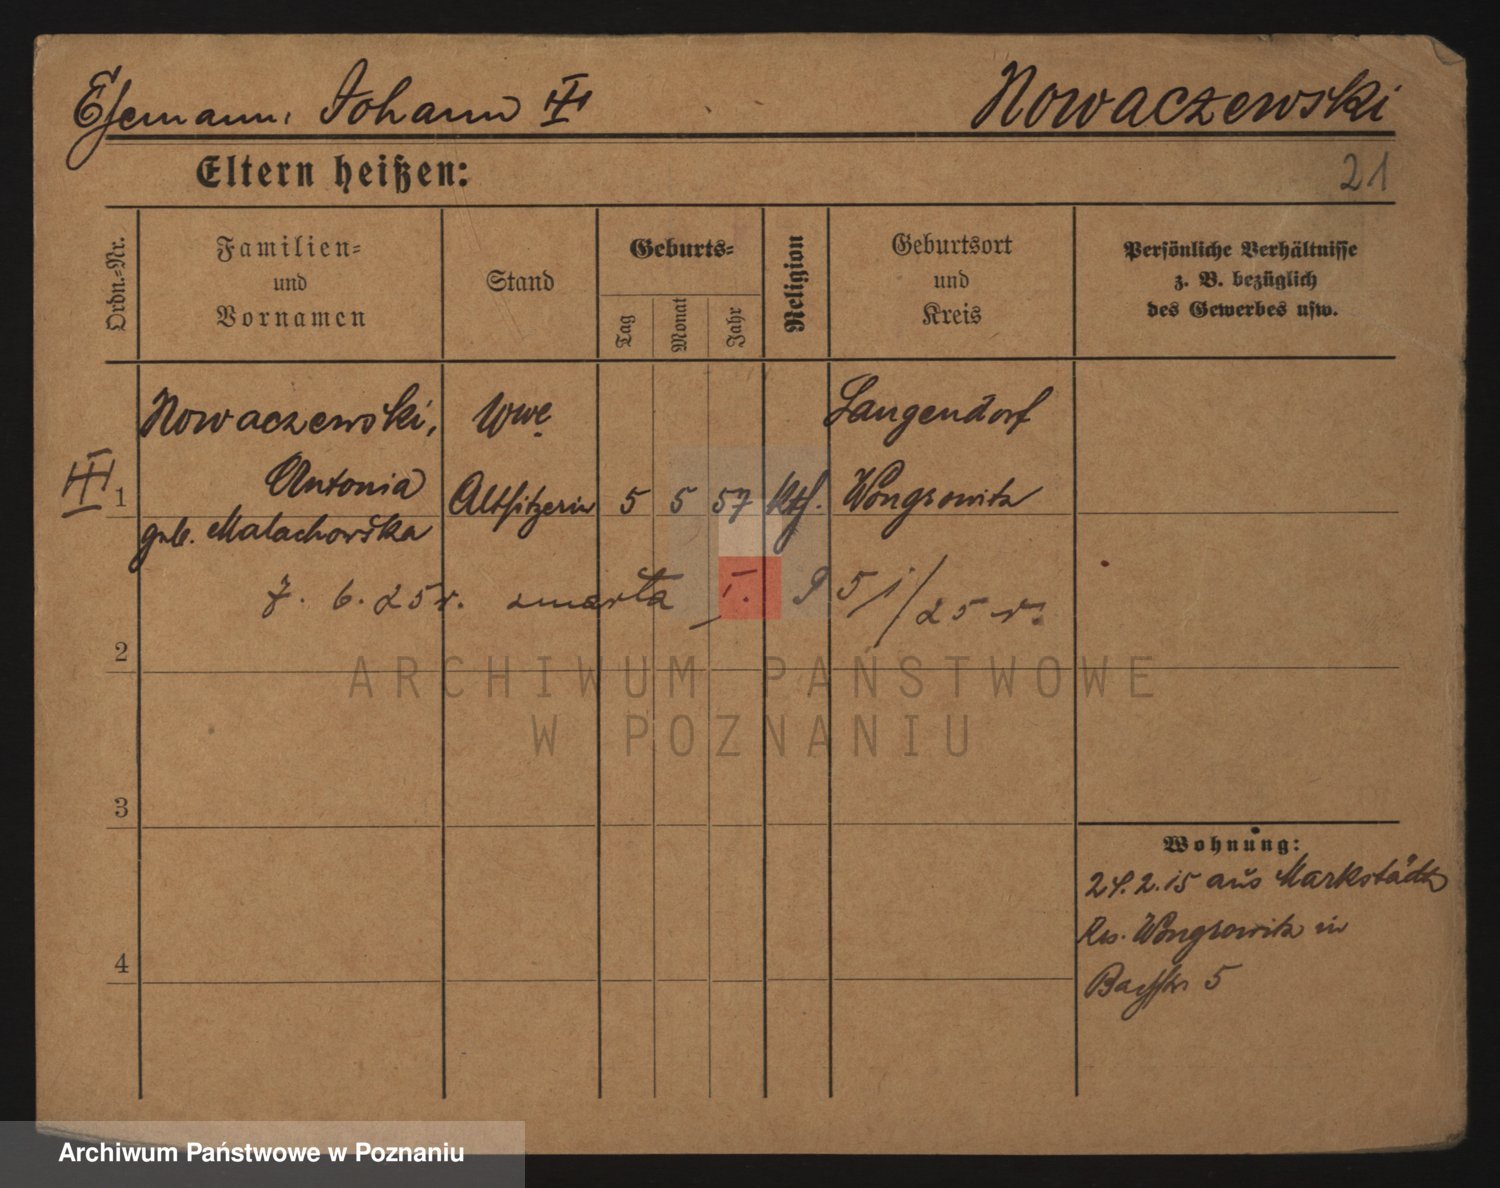 Ehemann, Johann III Nowaczewski
Eltern heißen: 21
Ordn.-Nr.
Familien-
und
Vornamen
Stand
Geburts-
Tag
Monat
Jahr
Religion
Geburtsort
und
Kreis
Persönliche Verhältnisse
z. B. bezüglich
des Gewerbes usw.
Nowaczewski, Wwe Langendorf
III 1 Antonia Altsitzerin 5 5 57 kth. Wongrowitz
geb. Malachowska
7. 6. 25 r. zmarła I. 5 25 r.
2
3
4
Wohnung:
24.2.15 aus Markstädt
Krs. Wongrowitz in
5
ARCHIWUM PAŃSTWOWE
W POZNANIU
Archiwum Państwowe w Poznaniu